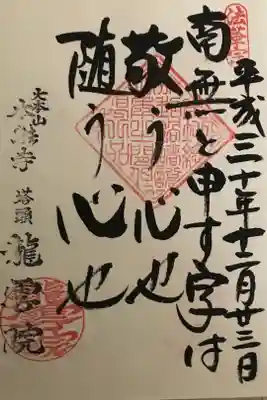 法華宗
平成三十年十二月廿三日
南無と申す字は
敬う心也
随う心也
大本山
本能寺
塔頭
龍雲院